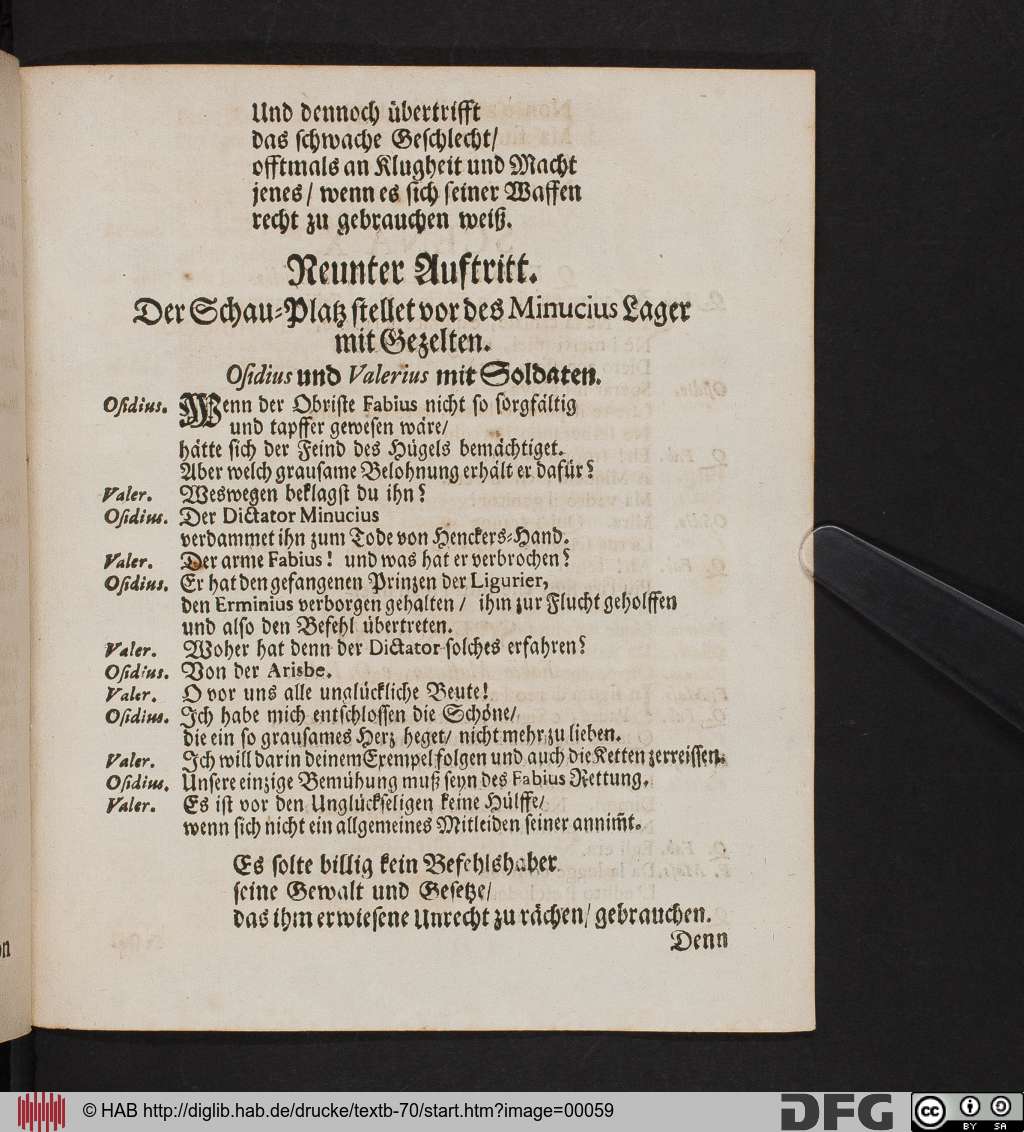 Und dennoch übertrifft
das schwache Geschlecht/
offtmals an Klugheit und Macht
jenes/ wenn es sich seiner Waffen
recht zu gebrauchen weiß.
Neunter Auftritt.
Der Schau-Platz stellet vor des Minucius Lager
mit Gezelten.
Osidius und Valerius mit Soldaten.
Osidius. Wenn der Obriste Fabius nicht so sorgfältig
und tapffer gewesen wäre/
hätte sich der Feind des Hügels bemächtiget.
Aber welch grausame Belohnung erhält er dafür?
Valer. Weswegen beklagst du ihn?
Osidius. Der Dictator Minucius
verdammet ihn zum Tode von Henckers-Hand.
Valer. Der arme Fabius! und was hat er verbrochen?
Osidius. Er hat den gefangenen Prinzen der Ligurier,
den Erminius verborgen gehalten/ ihm zur Flucht geholffen
und also den Befehl übertreten.
Valer. Woher hat denn der Dictator solches erfahren?
Osidius. Von der Arisbe.
Valer. O vor uns alle unglückliche Beute!
Osidius. Ich habe mich entschlossen die Schöne/
die ein so grausames Herz heget/ nicht mehr zu lieben.
Valer. Ich will darin deinem Exempel folgen und auch die Ketten zerreissen.
Osidius. Unsere einzige Bemühung muß seyn des Fabius Rettung.
Valer. Es ist vor den Unglückseligen keine Hülffe/
wenn sich nicht ein allgemeines Mitleiden seiner annim̃t.
Es solte billig kein Befehlshaber
seine Gewalt und Gesetze/
das ihm erwiesene Unrecht zu rächen/ gebrauchen.
Denn
© HAB http://diglib.hab.de/drucke/textb-70/start.htm?image=00059
DFG
cc BY SA